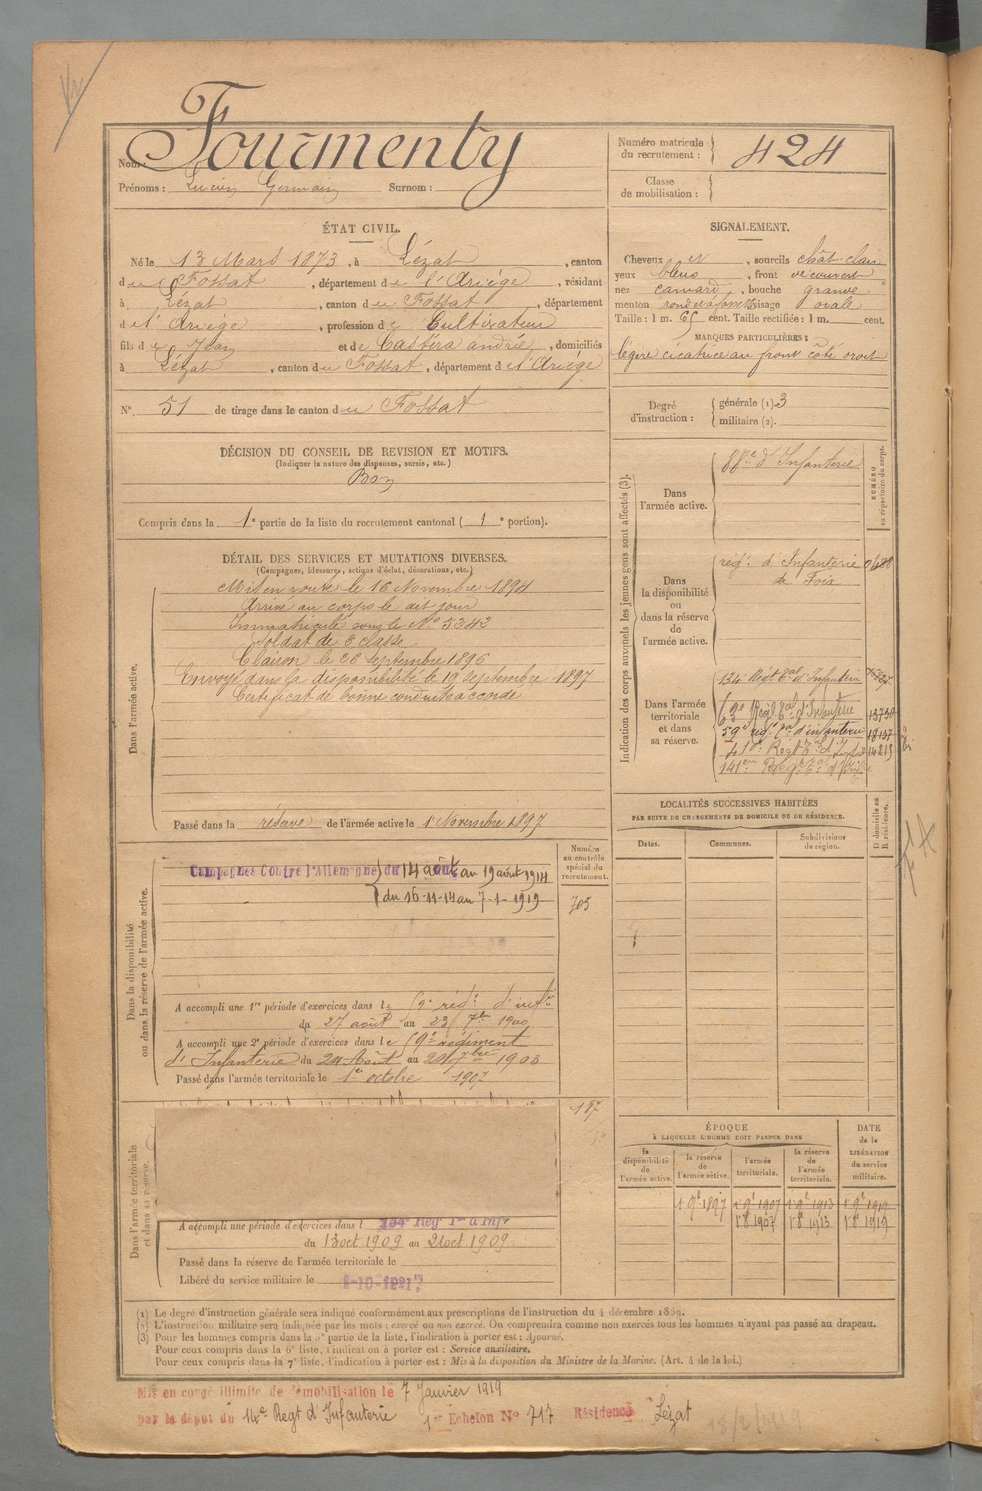 Fourmenty
Nom :
Prénoms : Lucien Germain Surnom :
Numéro matricule du recrutement : 424
Classe de mobilisation :
ÉTAT CIVIL.
Né le 13 Mars 1873, à Lézat, canton
du Fossat, département de l'Ariège, résidant
à Lézat, canton du Fossat, département
de l'Ariège, profession de Cultivateur
fils de Jean et de Castéra andrée, domiciliés
à Lézat, canton du Fossat, département de l'Ariège
N° 51 de tirage dans le canton du Fossat
SIGNALEMENT.
Cheveux et, sourcils chât clair
yeux bleus, front découvert
nez camard, bouche grande
menton rond et à fossette visage ovale
Taille : 1 m. 65 cent. Taille rectifiée : 1 m. cent.
MARQUES PARTICULIÈRES :
légère cicatrice au front côté droit
Degré d'instruction : générale (1). 3
militaire (2).
DÉCISION DU CONSEIL DE REVISION ET MOTIFS.
(Indiquer la nature des dispenses, sursis, etc.)
Bon
Compris dans la 1e partie de la liste du recrutement cantonal ( 1e portion).
DÉTAIL DES SERVICES ET MUTATIONS DIVERSES.
(Campagnes, blessures, actions d'éclat, décorations, etc.)
Dans l'armée active.
Mis en route le 16 Novembre 1894
Arrivé au corps le dit jour
Immatriculé sous le N° 5342
Soldat de 2 classe
Clairon le 26 septembre 1896
Envoyé dans la disponibilité le 19 septembre 1897
Certificat de bonne conduite accordé
Passé dans la réserve de l'armée active le 1 Novembre 1897
Indication des corps auxquels les jeunes gens sont affectés (3).
NUMÉRO au répertoire du corps.
Dans l'armée active.
88e d'Infanterie
Dans la disponibilité ou dans la réserve de l'armée active.
régt d'Infanterie
de Foix
Dans l'armée territoriale et dans sa réserve.
134e Régt Eal d'Infanterie
63e Régt Eal d'Infanterie 13730
59e rég. d'infanterie 18137
14213
LOCALITÉS SUCCESSIVES HABITÉES
PAR SUITE DE CHANGEMENTS DE DOMICILE OU DE RÉSIDENCE.
Dates. Communes. Subdivisions de région. D domicile ou R résidence.
Dans la disponibilité ou dans la réserve de l'armée active.
Numéro au contrôle spécial du recrutement.
705
Campagnes Contre l'Allemagne du 14 août au 19 août 1914
du 16-11-14 au 7-1-1919
A accompli une 1re période d'exercices dans le 59e régt d'inftie
du 27 août au 23 7bre 1900
A accompli une 2e période d'exercices dans le 59e régiment
d'Infanterie du 24 Août au 20 7bre 1903
Passé dans l'armée territoriale le 1er octobre 1907
Dans l'armée territoriale et dans sa réserve.
A accompli une période d'exercices dans l 134e Reg Ter d'Infie
du 13 oct 1909 au 21 oct 1909
Passé dans la réserve de l'armée territoriale le
Libéré du service militaire le
ÉPOQUE
À LAQUELLE L'HOMME DOIT PASSER DANS
DATE de la LIBÉRATION du service militaire.
la disponibilité de l'armée active. la réserve de l'armée active. l'armée territoriale. la réserve de l'armée territoriale.
1 9e 1897 1 9e 1907 1 9e 1913 1 9e 1919
1 8e 1907 1 8e 1913 1 8e 1919
(1) Le degré d'instruction générale sera indiqué conformément aux prescriptions de l'instruction du 4 décembre 1889.
(2) L'instruction militaire sera indiquée par les mots : exercé ou non exercé. On comprendra comme non exercés tous les hommes n'ayant pas passé au drapeau.
(3) Pour les hommes compris dans la 5e partie de la liste, l'indication à porter est : Ajourné.
Pour ceux compris dans la 6e liste, l'indication à porter est : Service auxiliaire.
Pour ceux compris dans la 7e liste, l'indication à porter est : Mis à la disposition du Ministre de la Marine. (Art. 4 de la loi.)
Mis en congé illimité de démobilisation le 7 Janvier 1919
par le dépôt du 14e Regt d'Infanterie 1er Echelon N° 717 Résidence Lézat
13/2/1919